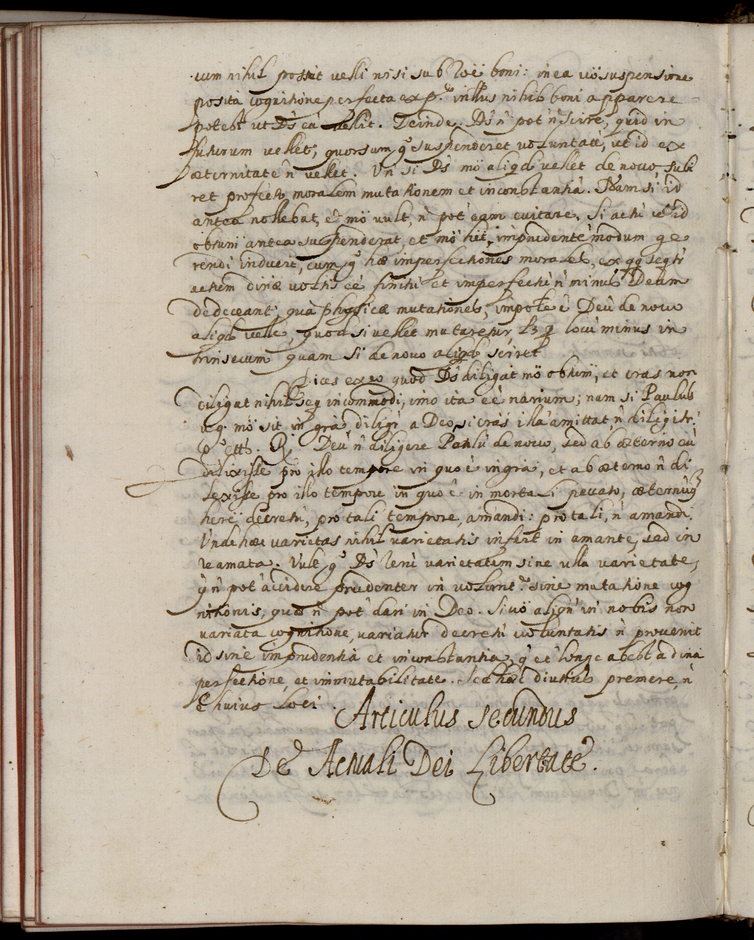 cum nihil possit velli nisi sub roë boni: in ea vö suspensione
posita cognitione perfecta ex p. illius nihil boni apparere
potest ut Ds eä velit. Deinde Ds n pot n scire, quid in
futurum vellet, quorsum g suspenderet voluntatë, ut id ex
æternitate n vellet. Un si Ds mö aliqd vellet de novo, subi
ret profecto moralem mutationem et inconstantia. Nam si id
antea nollebat, et mö vult, n pot eam evitare. Si actü v id
obiûi antea suspenderat, et mö hët, imprudentë modum ge
rendi induerit, cum g hæ imperfectiones morales, ex qq seqtr
actem divæ voltis ee finiti et imperfecti n minus Deum
dedeceant, quä physicæ mutationes, impole ë Deü de novo
aliqd velle, quod si vellet mutaretur, minus in
trinsecum quam si de novo aliqd sciret
Dices ex eo quod Ds diligat mö obiûm, et cras non
diligat nihil seq incommodi, imo ita eë narium; nam si Paulus
qi mö sit in gra, diligr a Deo, si cras illa amittat, n diligitr:
R. Deü n diligere Paulü de novo, sed ab æterno eü
dilexisse pro illo tempore in quo ë in gra, et ab æterno n di
lexisse pro illo tempore in quo ë in mortali peccato, æternüq
here decretü, pro tali tempore, amandi: pro tali, n amandi.
Unde hæc varietas nihil varietatis infert in amante, sed in
re amata. Vult g Ds rerü varietatem sine ulla varietate,
q n pot accidere prudenter in volunt. sine mutatione cog
nitionis, quod n pot dari in Deo. Si vö aliqn in nobis non
variata cognitione, variatur decretü voluntatis n provenit
id sine imprudentia et inconstantia, q et longe abest a divä
perfectione, et immutabilitate. Sed hæc diutius premere, n
ë huius loci.
Articulus secundus
De Actuali Dei Libertate.